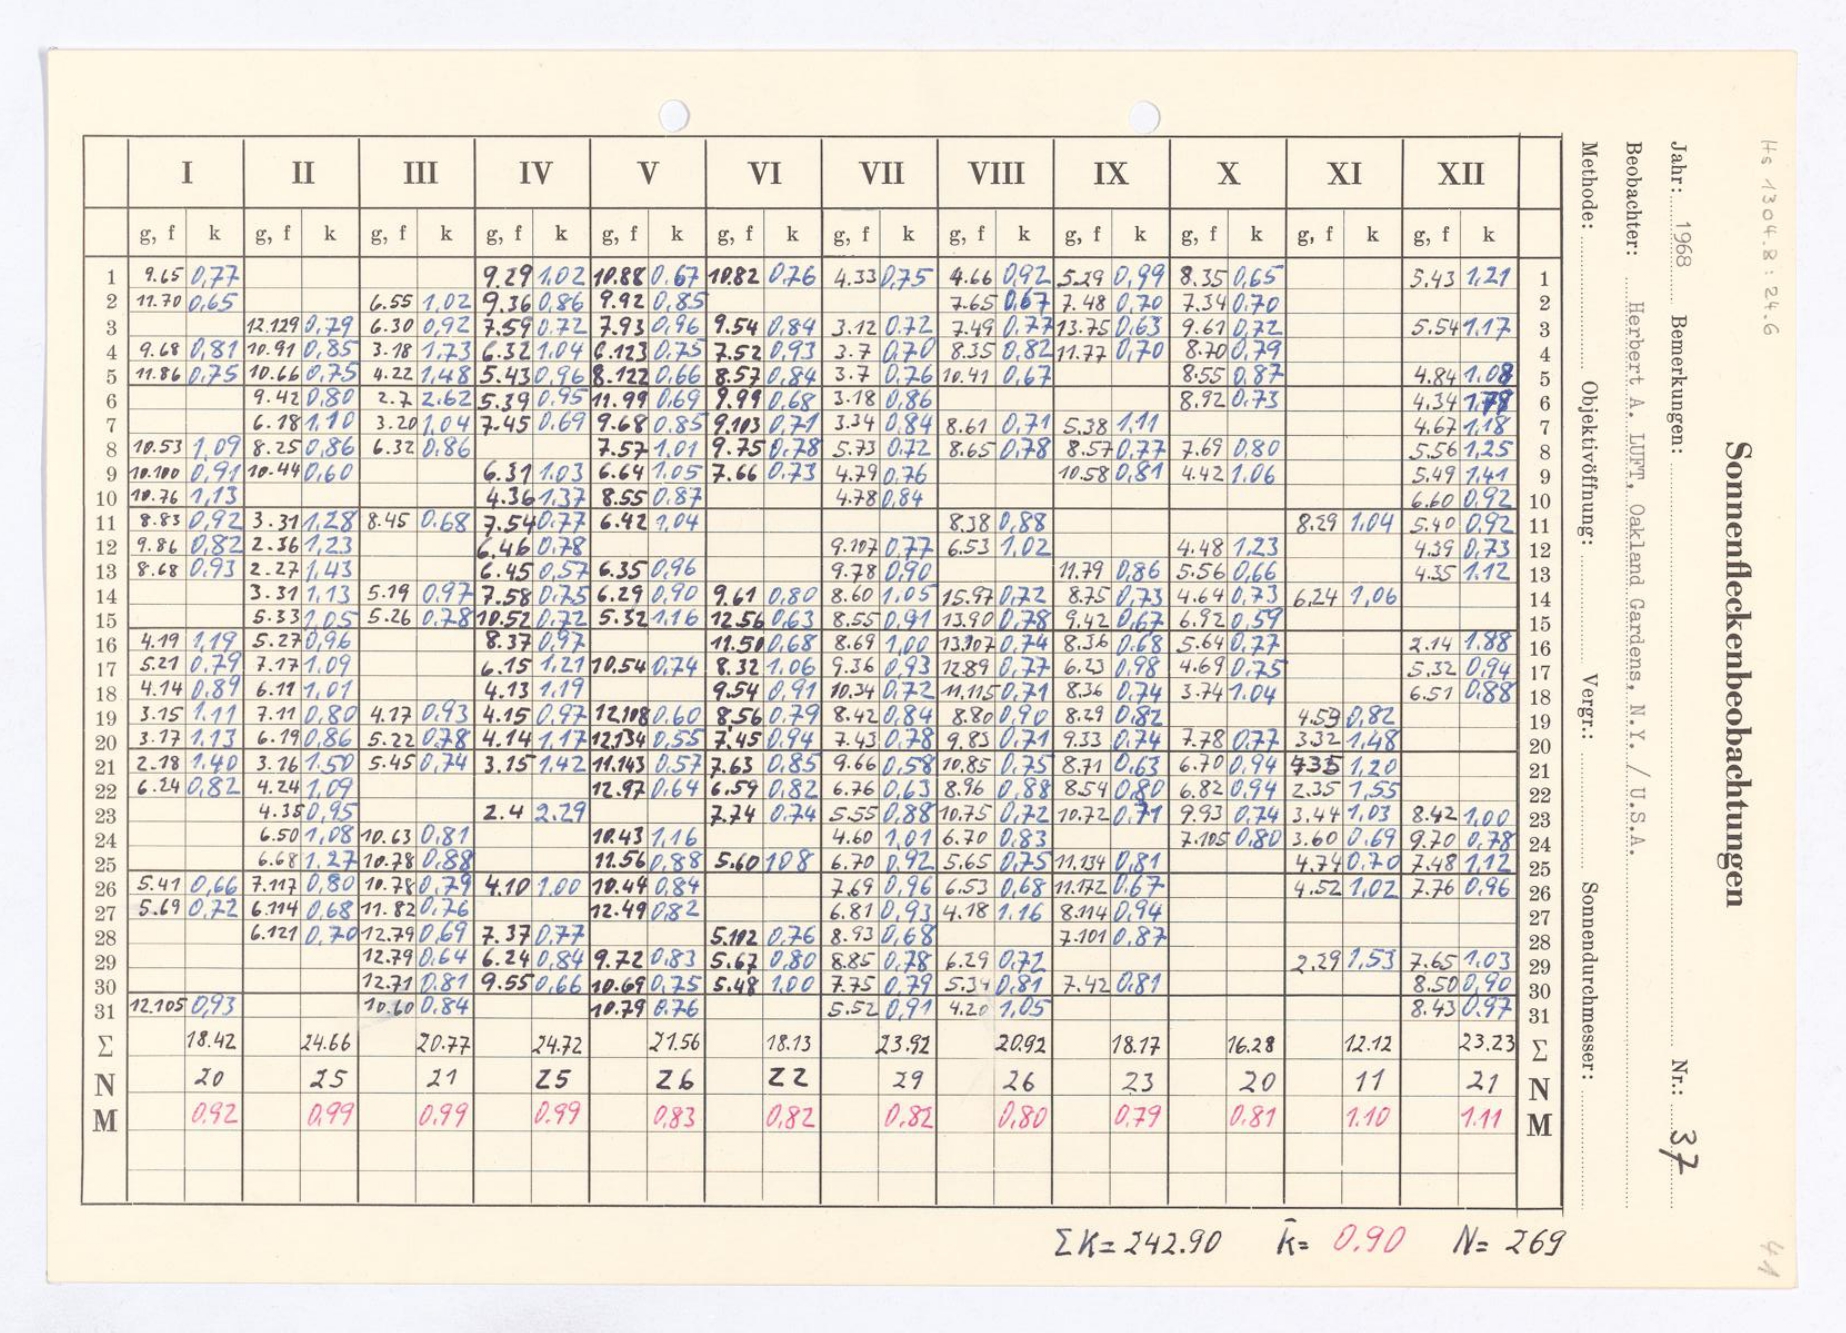 I II III IV V VI VII VIII IX X XI XII
g, f k g, f k g, f k g, f k g, f k g, f k g, f k g, f k g, f k g, f k g, f k g, f k
1 9.65 0,77 9.29 1.02 10.88 0.67 10.82 0,76 4.33 0,75 4.66 0,92 5.29 0,99 8.35 0,65 5.43 1,21 1
2 11.70 0,65 6.55 1,02 9.36 0,86 9.92 0,85 7.65 0,67 7.48 0,70 7.34 0,70 2
3 12.129 0,79 6.30 0,92 7.59 0.72 7.93 0,96 9.54 0,84 3.12 0,72 7.49 0,77 13.75 0,63 9.61 0,72 5.54 1,17 3
4 9.68 0,81 10.91 0,85 3.18 1,73 6.32 1.04 6.123 0,75 7.52 0,93 3.7 0,70 8.35 0,82 11.77 0,70 8.70 0,79 4
5 11.86 0,75 10.66 0,75 4.22 1,48 5.43 0,96 8.122 0,66 8.57 0,84 3.7 0,76 10.41 0,67 8.55 0,87 4.84 1.08 5
6 9.42 0,80 2.7 2,62 5.39 0,95 11.99 0,69 9.99 0,68 3.18 0,86 8.92 0,73 4.34 6
7 6.18 1,10 3.20 1,04 7.45 0,69 9.68 0,85 9.103 0,71 3.34 0,84 8.61 0,71 5.38 1,11 4.67 1,18 7
8 10.53 1,09 8.25 0,86 6.32 0,86 7.57 1,01 9.75 0,78 5.73 0,72 8.65 0,78 8.57 0,77 7.69 0,80 5.56 1,25 8
9 10.100 0,91 10.44 0,60 6.31 1.03 6.64 1.05 7.66 0,73 4.79 0,76 10.58 0,81 4.42 1.06 5.49 1,41 9
10 10.76 1,13 4.36 1,37 8.55 0,87 4.78 0,84 6.60 0,92 10
11 8.83 0,92 3.31 1,28 8.45 0.68 7.54 0,77 6.42 1,04 8.38 0,88 8.29 1.04 5.40 0,92 11
12 9.86 0,82 2.36 1,23 6.46 0,78 9.107 0,77 6.53 1,02 4.48 1,23 4.39 0,73 12
13 8.68 0.93 2.27 1,43 6.45 0,57 6.35 0,96 9.78 0,90 11.79 0,86 5.56 0,66 4.35 1.12 13
14 3.31 1,13 5.19 0.97 7.58 0,75 6.29 0,90 9.61 0,80 8.60 1.05 15.97 0,72 8.75 0,73 4.64 0,73 6.24 1,06 14
15 5.33 1,05 5.26 0,78 10.52 0,72 5.32 1.16 12.56 0,63 8.55 0,91 13.90 0,78 9.42 0,67 6.92 0,59 15
16 4.19 1,19 5.27 0,96 8.37 0,97 11.50 0,68 8.69 1,00 13.107 0,74 8.36 0.68 5.64 0,77 2.14 1.88 16
17 5.21 0,79 7.17 1,09 6.15 1,21 10.54 0,74 8.32 1.06 9.36 0,93 12.89 0,77 6.23 0,98 4.69 0,75 5.32 0,94 17
18 4.14 0,89 6.11 1,01 4.13 1,19 9.54 0,91 10.34 0,72 11.115 0,71 8.36 0,74 3.74 1.04 6.51 0,88 18
19 3.15 1.11 7.11 0,80 4.17 0,93 4.15 0,97 12.108 0.60 8.56 0,79 8.42 0,84 8.80 0,90 8.29 0,82 4.59 0,82 19
20 3.17 1,13 6.19 0,86 5.22 0,78 4.14 1,17 12.134 0,55 7.45 0,94 7.43 0,78 9.83 0,71 9.33 0,74 7.78 0,77 3.32 1,48 20
21 2.18 1,40 3.16 1,50 5.45 0,74 3.15 1,42 11.143 0,57 7.63 0,85 9.66 0,58 10.85 0,75 8.71 0,63 6.70 0,94 1,20 21
22 6.24 0,82 4.24 1,09 12.97 0,64 6.59 0,82 6.76 0,63 8.96 0,88 8.54 0,80 6.82 0,94 2.35 1,55 22
23 4.35 0,95 2.4 2.29 7.74 0,74 5.55 0,88 10.75 0,72 10.72 0,71 9.93 0,74 3.44 1,03 8.42 1,00 23
24 6.50 1,08 10.63 0,81 10.43 1,16 4.60 1,01 6.70 0,83 7.105 0,80 3.60 0.69 9.70 0,78 24
25 6.68 1,27 10.78 0,88 11.56 0,88 5.60 108 6.70 0,92 5.65 0,75 11.134 0,81 4.74 0.70 7.48 1,12 25
26 5.41 0,66 7.117 0,80 10.78 0,79 4.10 1.00 10.44 0,84 7.69 0,96 6.53 0,68 11.172 0.67 4.52 1,02 7.76 0,96 26
27 5.69 0,72 6.114 0,68 11.82 0,76 12.49 0,82 6.81 0,93 4.18 1.16 8.114 0,94 27
28 6.121 0,70 12.79 0,69 7.37 0,77 5.102 0,76 8.93 0,68 7.101 0,87 28
29 12.79 0,64 6.24 0,84 9.72 0,83 5.67 0,80 8.85 0,78 6.29 0,72 2.29 1,53 7.65 1.03 29
30 12.71 0,81 9.55 0,66 10.69 0,75 5.48 1,00 7.75 0,79 5.34 0,81 7.42 0,81 8.50 0,90 30
31 12.105 0,93 10.60 0,84 10.79 0.76 5.52 0,91 4.20 1,05 8.43 0.97 31
Σ 18.42 24.66 20.77 24.72 21.56 18.13 23.92 20.92 18.17 16.28 12.12 23.23 Σ
N 20 25 21 25 26 22 29 26 23 20 11 21 N
M 0.92 0,99 0,99 0.99 0,83 0,82 0,82 0,80 0.79 0.81 1.10 1.11 M
ΣK = 242.90 k̄ = 0.90 N = 269
Sonnenfleckenbeobachtungen
Jahr: 1968 Bemerkungen: Nr.: 37
Beobachter: Herbert A. LUFT, Oakland Gardens, N.Y. / U.S.A.
Methode: Objektivöffnung: Vergr.: Sonnendurchmesser:
Hs 1304.8:24.6
41